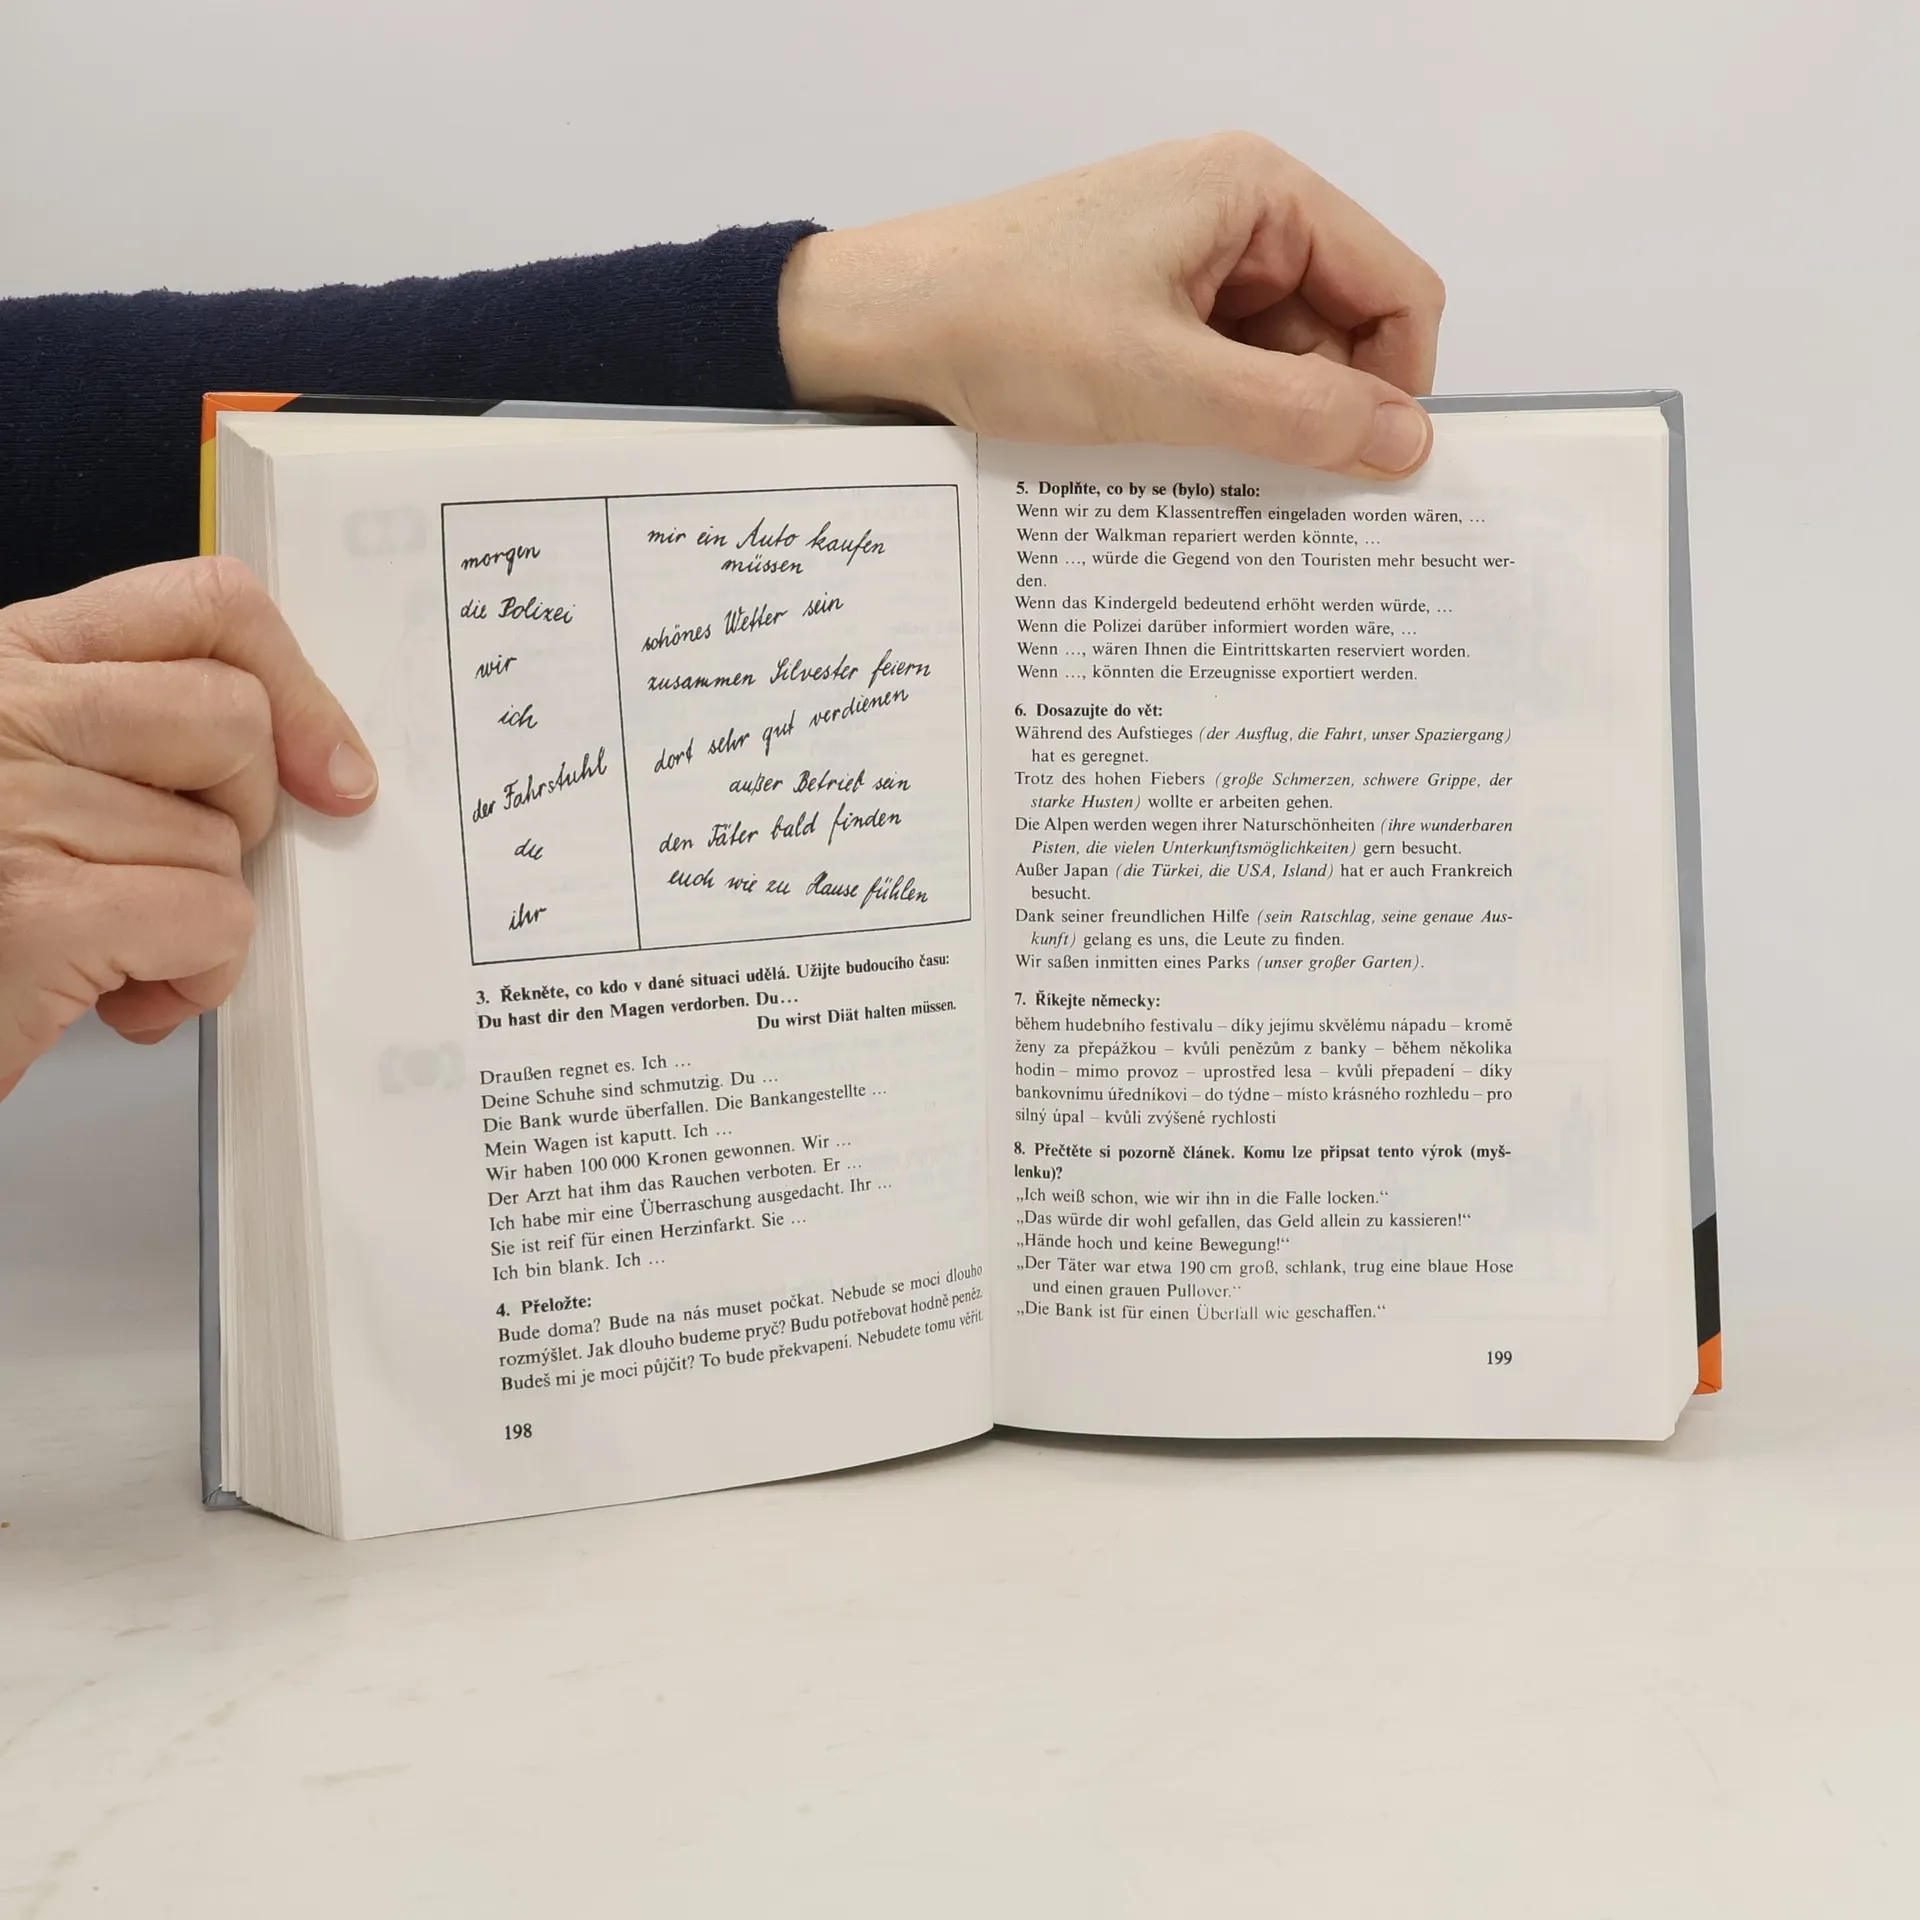 morgen
die Polizei
wir
ich
der Fahrstuhl
du
ihr
mir ein Auto kaufen
müssen
schönes Wetter sein
zusammen Silvester feiern
dort sehr gut verdienen
außer Betrieb sein
den Täter bald finden
euch wie zu Hause fühlen
3. Řekněte, co kdo v dané situaci udělá. Užijte budoucího času:
Du hast dir den Magen verdorben. Du...
Du wirst Diät halten müssen.
Draußen regnet es. Ich ...
Deine Schuhe sind schmutzig. Du ...
Die Bank wurde überfallen. Die Bankangestellte ...
Mein Wagen ist kaputt. Ich ...
Wir haben 100 000 Kronen gewonnen. Wir ...
Der Arzt hat ihm das Rauchen verboten. Er ...
Ich habe mir eine Überraschung ausgedacht. Ihr ...
Sie ist reif für einen Herzinfarkt. Sie ...
Ich bin blank. Ich ...
4. Přeložte:
Bude doma? Bude na nás muset počkat. Nebude se moci dlouho
rozmýšlet. Jak dlouho budeme pryč? Budu potřebovat hodně peněz.
Budeš mi je moci půjčit? To bude překvapení. Nebudete tomu věřit.
198
5. Doplňte, co by se (bylo) stalo:
Wenn wir zu dem Klassentreffen eingeladen worden wären, ...
Wenn der Walkman repariert werden könnte, ...
Wenn ..., würde die Gegend von den Touristen mehr besucht wer-
den.
Wenn das Kindergeld bedeutend erhöht werden würde, ...
Wenn die Polizei darüber informiert worden wäre, ...
Wenn ..., wären Ihnen die Eintrittskarten reserviert worden.
Wenn ..., könnten die Erzeugnisse exportiert werden.
6. Dosazujte do vět:
Während des Aufstieges (der Ausflug, die Fahrt, unser Spaziergang)
hat es geregnet.
Trotz des hohen Fiebers (große Schmerzen, schwere Grippe, der
starke Husten) wollte er arbeiten gehen.
Die Alpen werden wegen ihrer Naturschönheiten (ihre wunderbaren
Pisten, die vielen Unterkunftsmöglichkeiten) gern besucht.
Außer Japan (die Türkei, die USA, Island) hat er auch Frankreich
besucht.
Dank seiner freundlichen Hilfe (sein Ratschlag, seine genaue Aus-
kunft) gelang es uns, die Leute zu finden.
Wir saßen inmitten eines Parks (unser großer Garten).
7. Říkejte německy:
během hudebního festivalu – díky jejímu skvělému nápadu – kromě
ženy za přepážkou – kvůli penězům z banky – během několika
hodin – mimo provoz – uprostřed lesa – kvůli přepadení – díky
bankovnímu úředníkovi – do týdne – místo krásného rozhledu – pro
silný úpal – kvůli zvýšené rychlosti
8. Přečtěte si pozorně článek. Komu lze připsat tento výrok (myš-
lenku)?
„Ich weiß schon, wie wir ihn in die Falle locken.“
„Das würde dir wohl gefallen, das Geld allein zu kassieren!“
„Hände hoch und keine Bewegung!“
„Der Täter war etwa 190 cm groß, schlank, trug eine blaue Hose
und einen grauen Pullover.“
„Die Bank ist für einen Überfall wie geschaffen.“
199